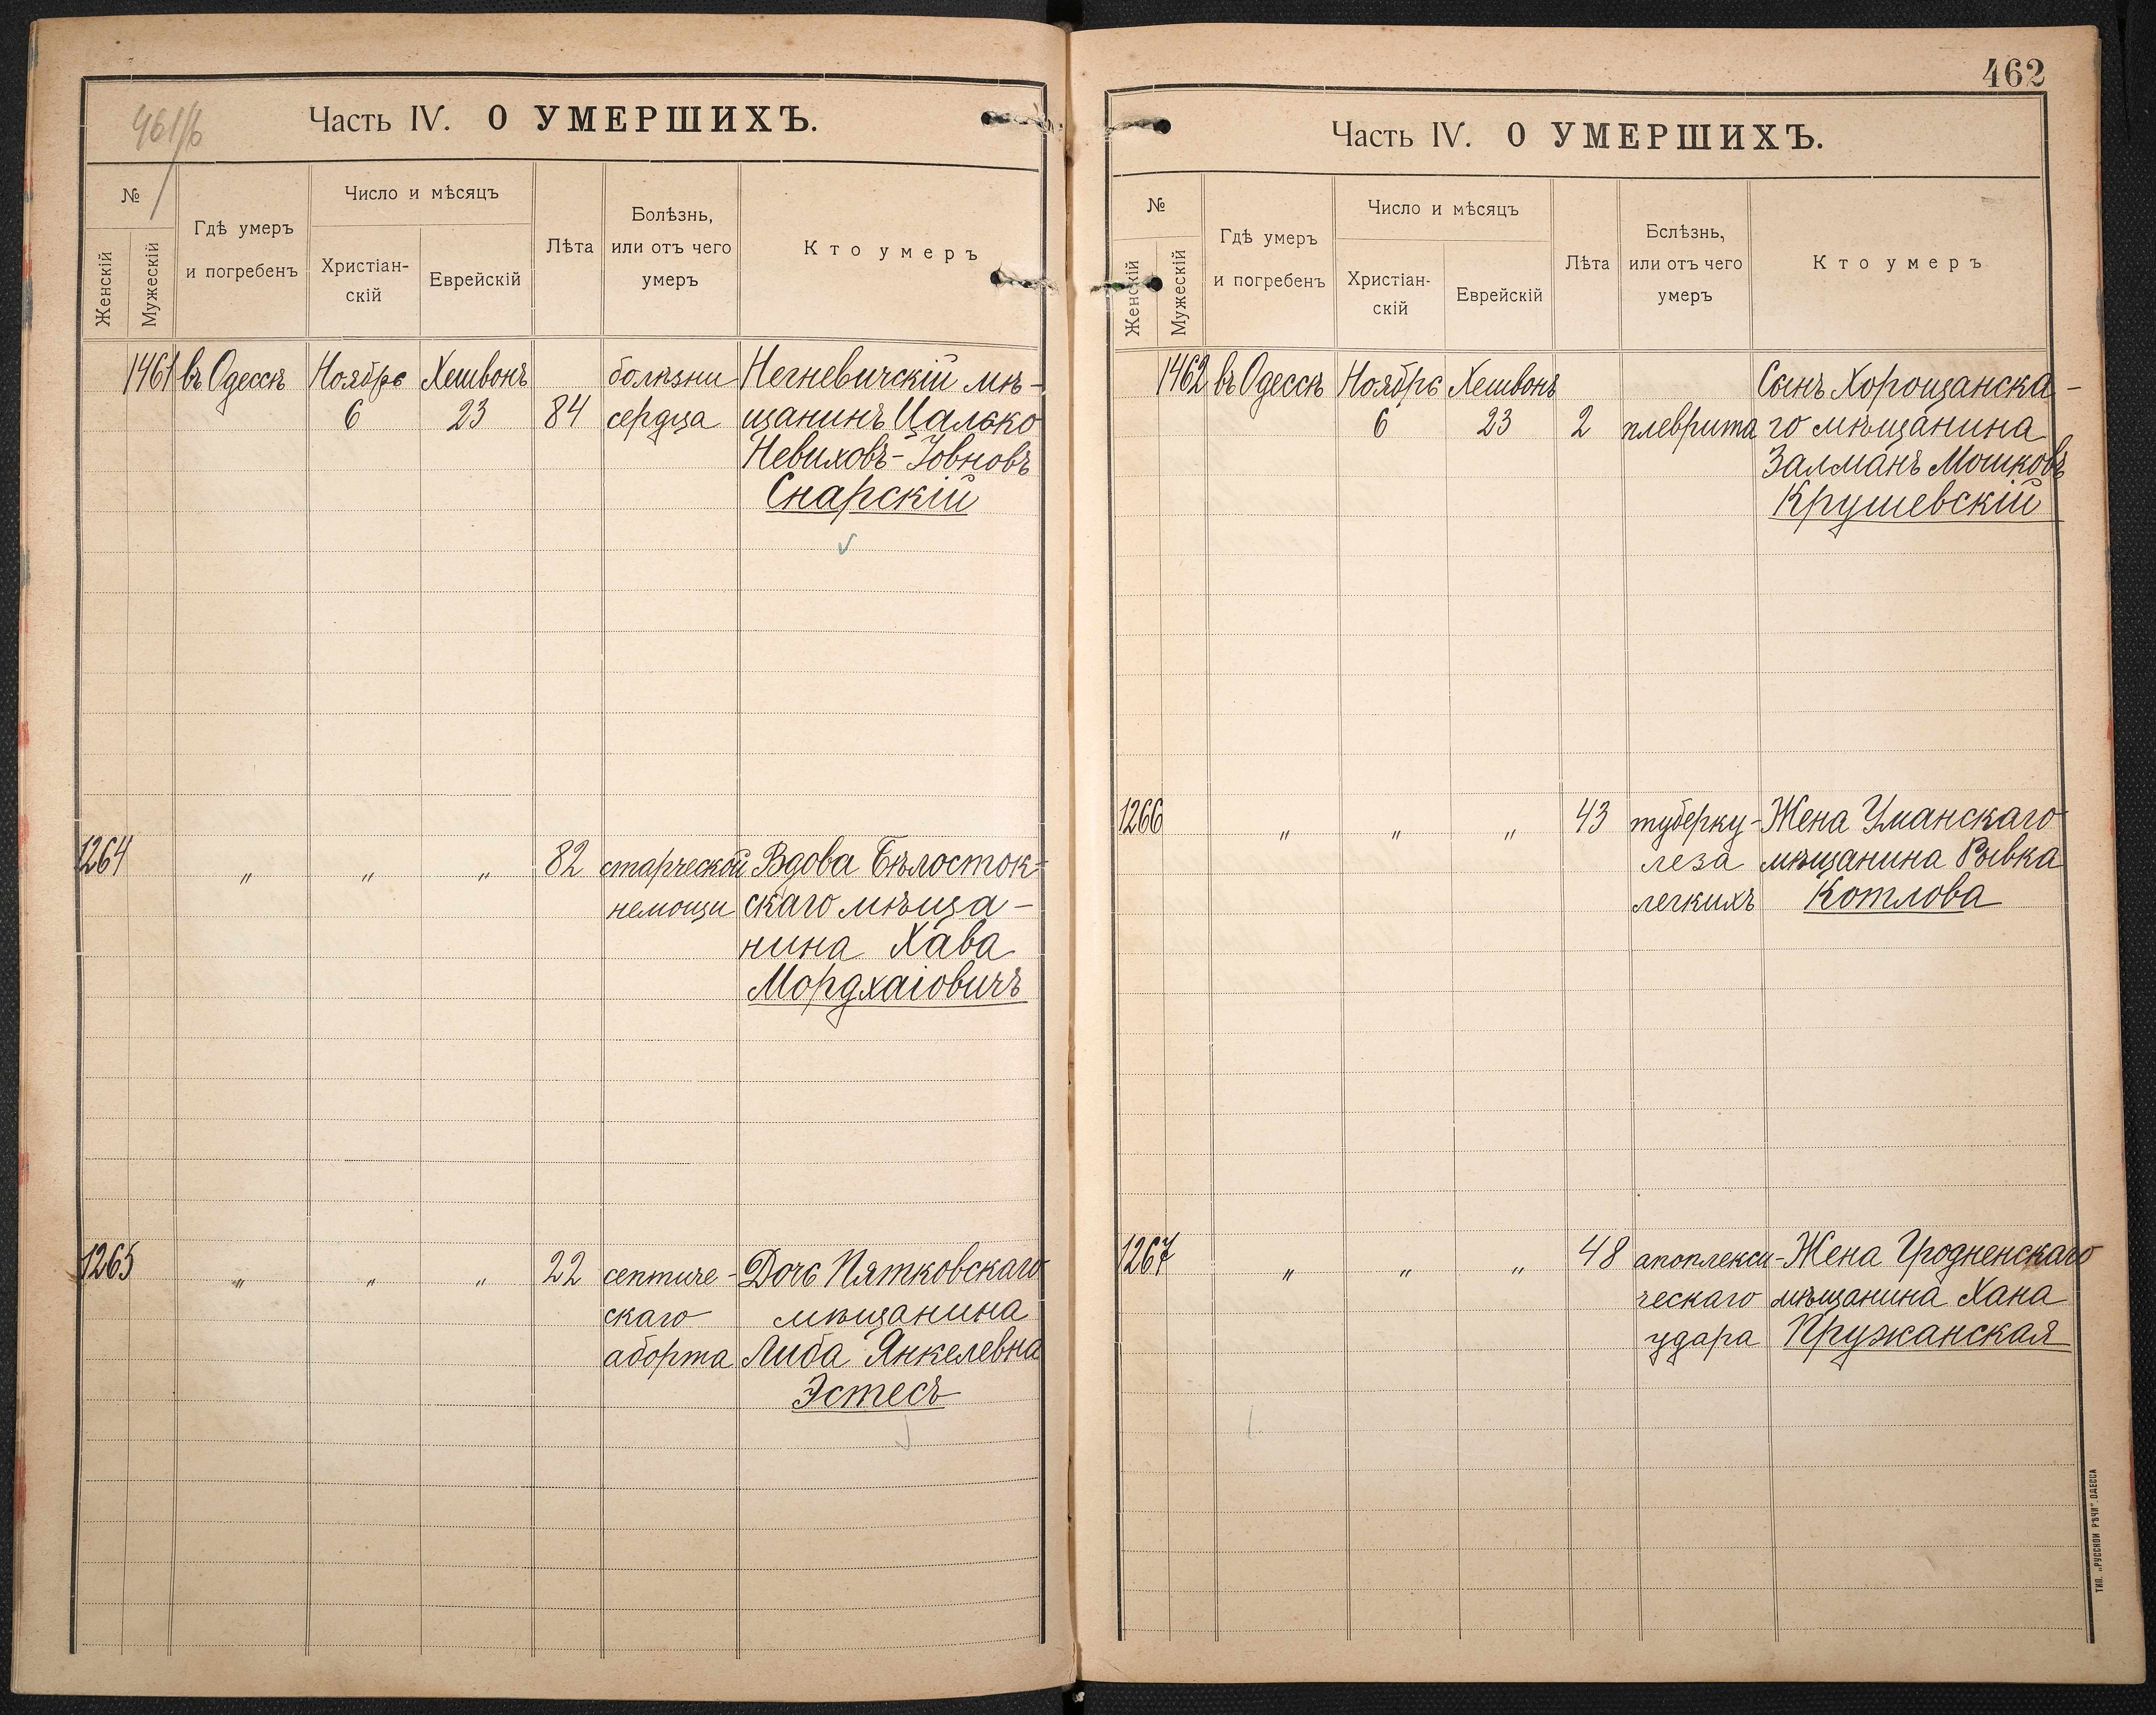 461/б
Часть IV. О УМЕРШИХЪ.
№
Женскій
Мужескій
Гдѣ умеръ
и погребенъ
Число и мѣсяцъ
Христіан-
скій
Еврейскій
Лѣта
Болѣзнь,
или отъ чего
умеръ
Кто умеръ
1461 въ Одессѣ Ноябрь Хешвонъ болѣзни Негневичскій мѣ-
6 23 84 сердца щанинъ Цалько
Невиховъ-Іовновъ
Снарскій
1264 " " " 82 старческой Вдова Бѣлосток-
немощи скаго мѣща-
нина Хава
Мордхаіовичъ
1265 " " " 22 септиче- Дочь Пятковскаго
скаго мѣщанина
аборта Либа Янкелевна
Эстесъ
462
Часть IV. О УМЕРШИХЪ.
№
Женскій
Мужескій
Гдѣ умеръ
и погребенъ
Число и мѣсяцъ
Христіан-
скій
Еврейскій
Лѣта
Бслѣзнь,
или отъ чего
умеръ
Кто умеръ
1462 въ Одессѣ Ноябрь Хешвонъ Сынъ Хорощанска-
6 23 2 плеврита го мѣщанина
Залманъ Мошковъ
Крушевскій
1266 " " " 43 туберку- Жена Уманскаго
леза мѣщанина Рывка
легкихъ Котлова
1267 " " " 48 апоплекси- Жена Гродненскаго
ческаго мѣщанина Хана
удара Пружанская
ТИП. „РУССКОЙ РѢЧИ". ОДЕССА